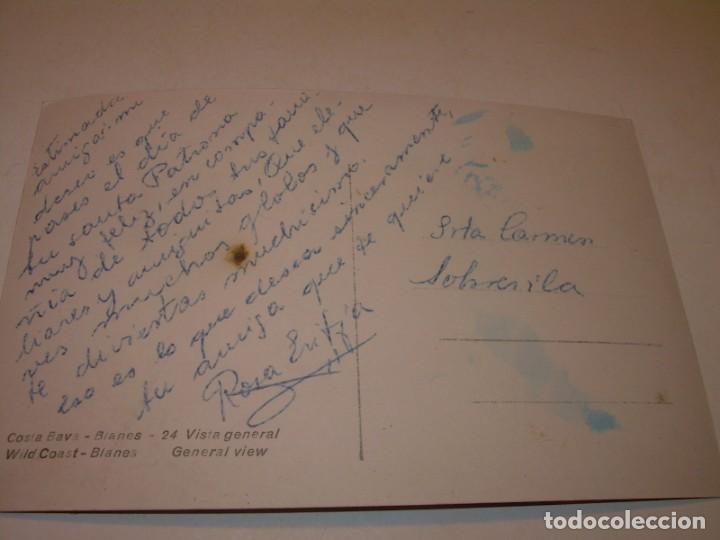 Estimada
amiga: mi
deseo es que
pases el día de
tu santa Patrona
muy feliz, en compa-
ñia de todos tus fami-
liares y amiguitas, Que ele-
ves muchos globos y que
te diviertas muchisimo.
Eso es lo que desea sinceramente,
tu amiga que te quiere
Rosa
Srta Carmen
Sobrevila
Costa Bava - Blanes - 24 Vista general
Wild Coast - Blanes General view
todocoleccion